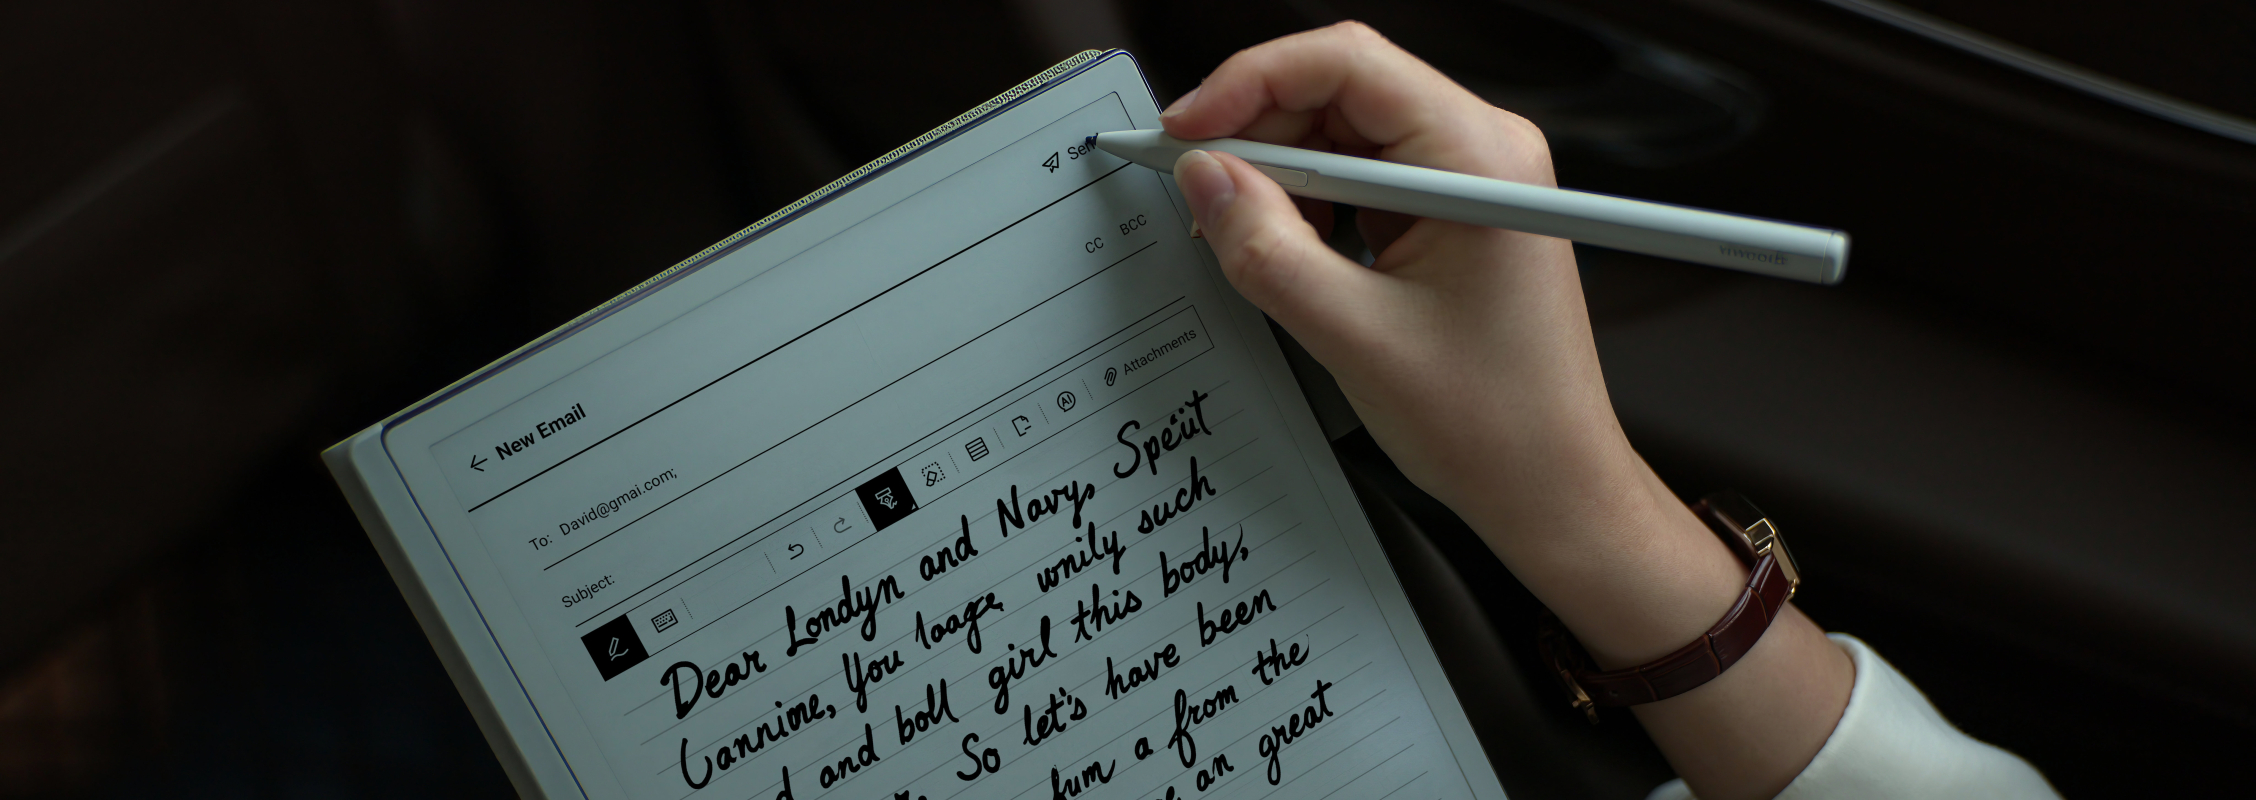 Send
New Email
CC BCC
To: David@gmai.com;
Subject:
AI
Attachments
Dear Londyn and Navy, Speüt
Cannime, You laage wnily such
d and boll girl this body,
So let's have been
fum a from the
an great